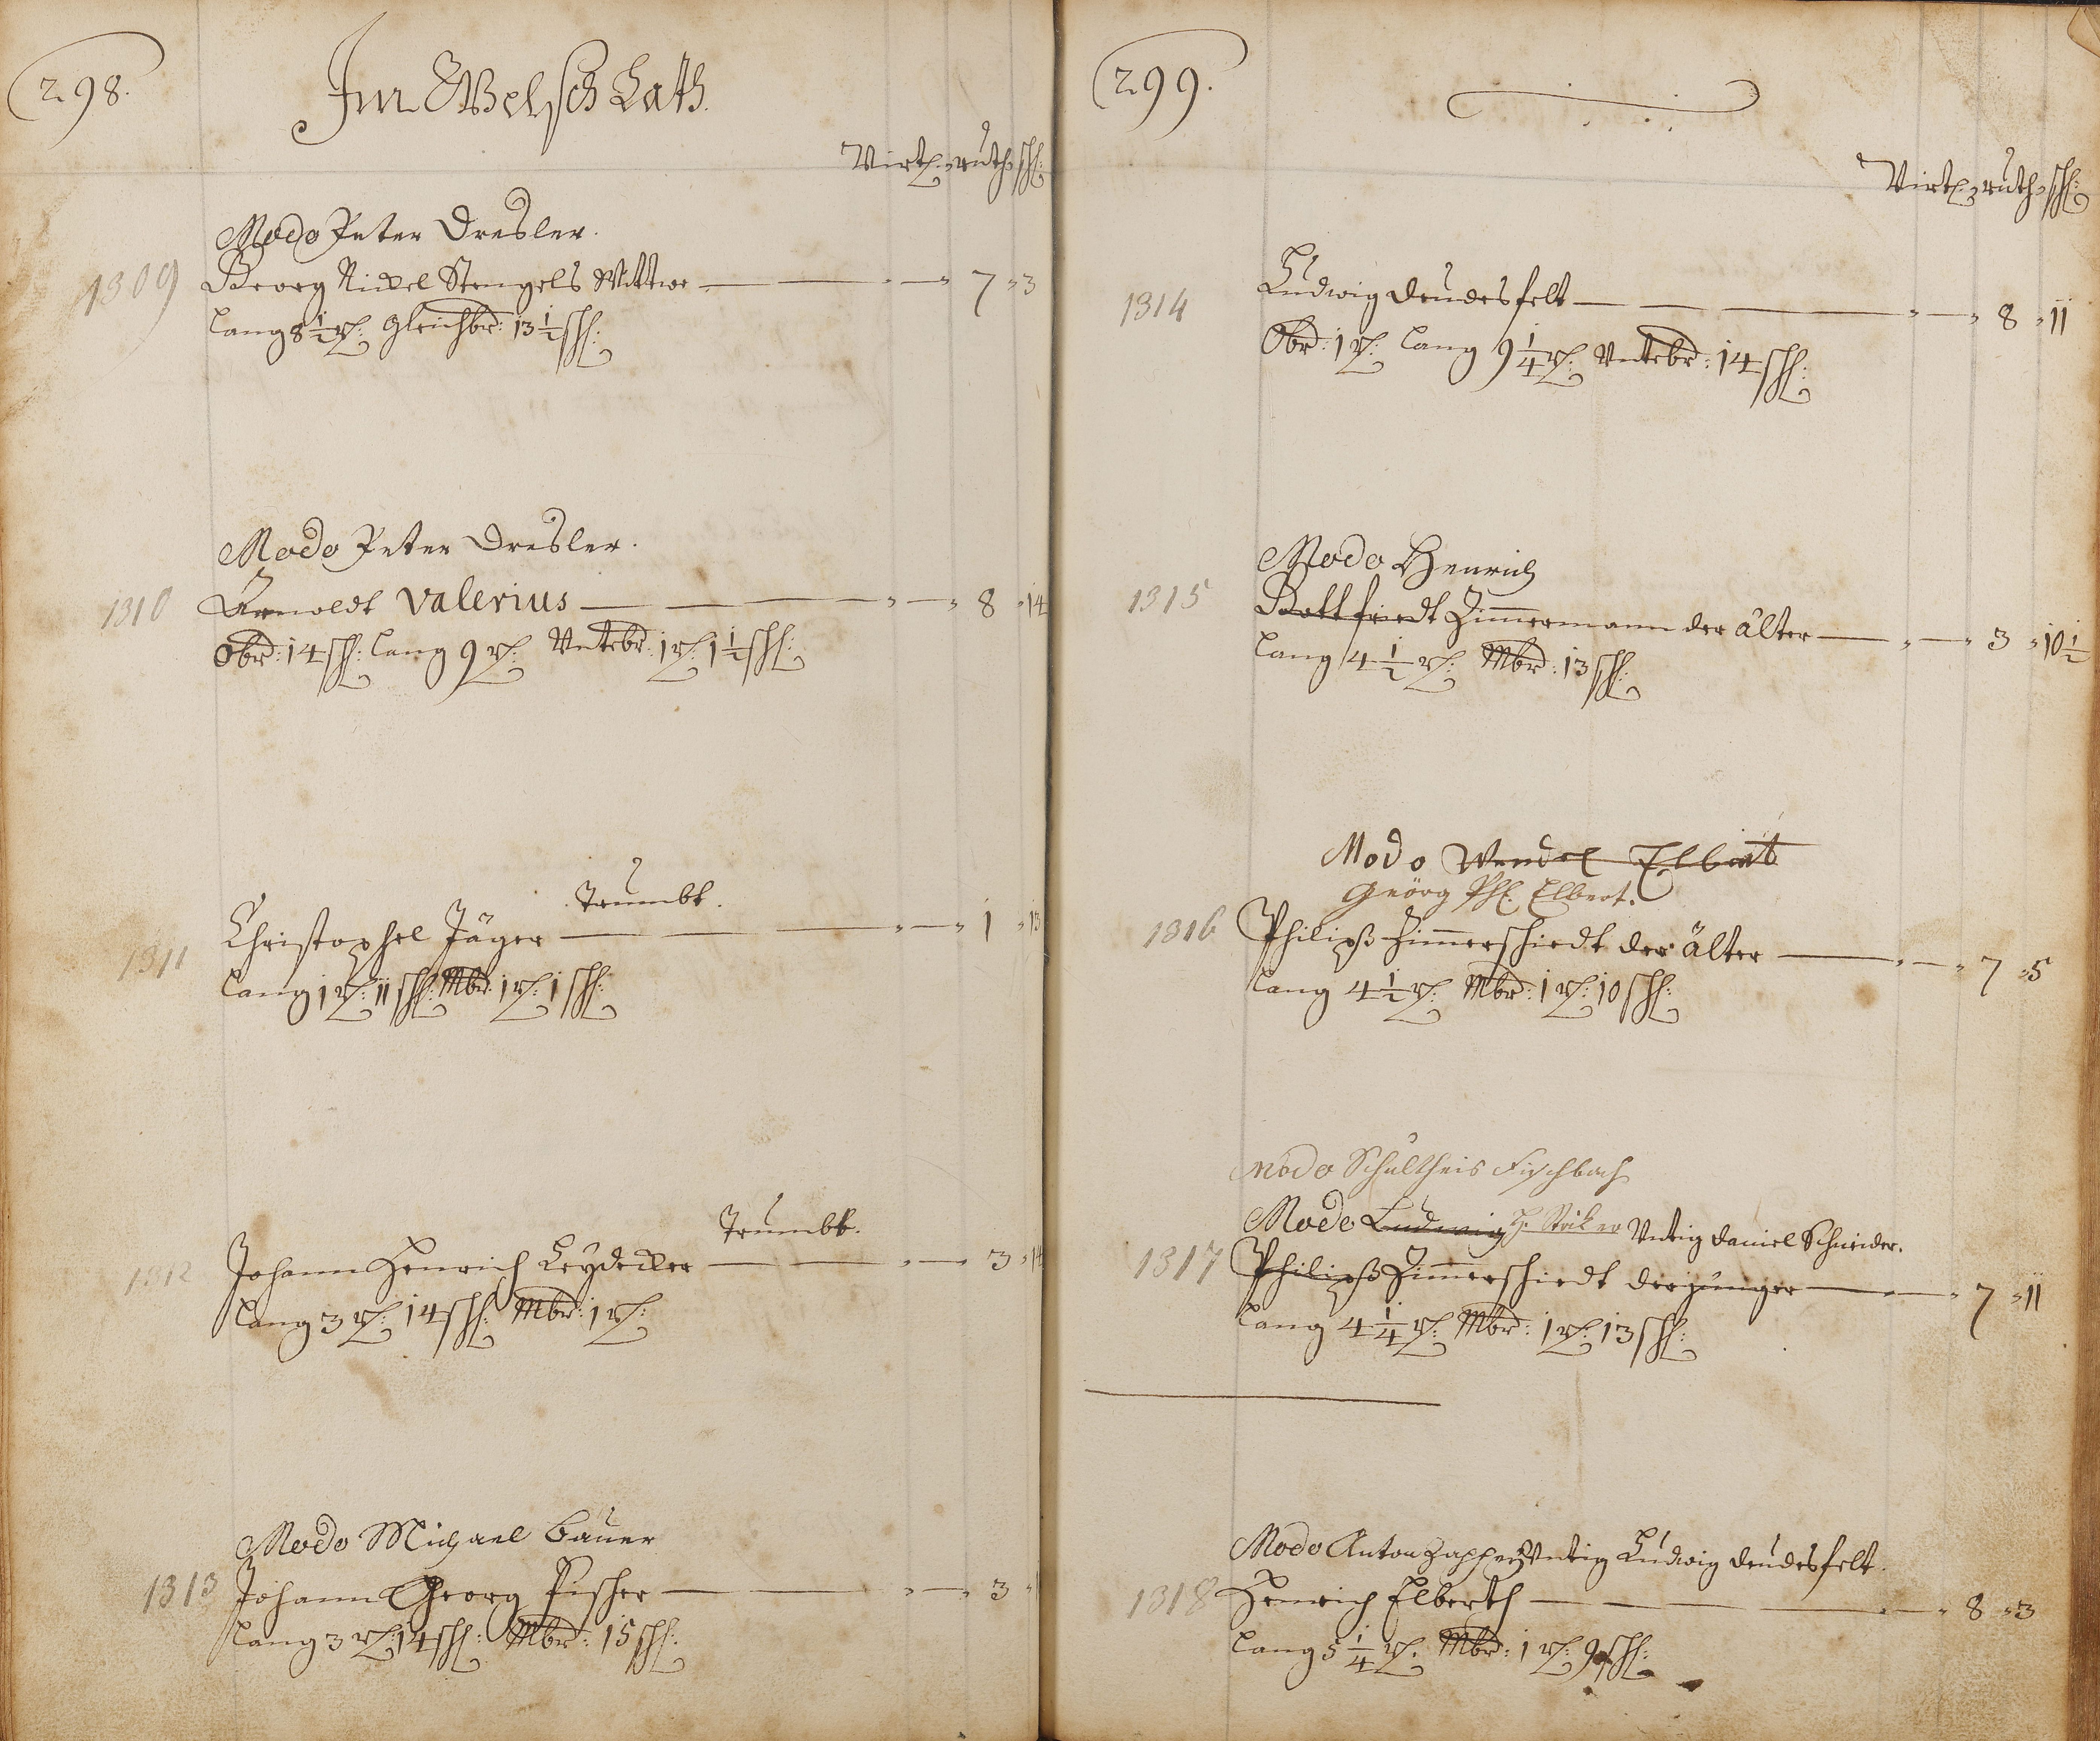 298.
Im Welsch Lath.
Virtl: ruth: sch:
Modo Peter Dresler.
1309 Georg Nickel Stengels Wittwe — — " — " 7 " 3
lang 8 1/2 r: gleichbr: 13 1/2 sch:
Modo Peter Dresler.
1310 Arnoldt Valerius — — — " — " 8 " 14
Obr: 14 sch: lang 9 r: Untebr: 1 r: 1 1/2 sch:
Trumbt.
1311 Christophel Jäger — — — " — " 1 " 13
lang 1 r: 11 sch: Mbr: 1 r: 1 sch:
Trumbt.
1312 Johann Henrich Leydecker — — " — " 3 " 14
lang 3 r: 14 sch: Mbr: 1 r:
Modo Michael Bauer
1313 Johann Georg Fischer — — " — " 3 "
lang 3 r: 14 sch: Mbr: 15 sch:
299.
Virtl: ruth: sch:
1314 Ludwig Deudesfelt — — — " — " 8 " 11
Obr: 1 r: lang 9 1/4 r: Untebr: 14 sch:
Modo Henrich
1315 Gottfriedt Zimmermann der älter — " — " 3 " 10 1/2
lang 4 1/2 r: Mbr: 13 sch:
Modo Wendel Elbert
Geörg Phl. Elbert.
1316 Philipß Zimmerschiedt der älter — " — " 7 " 5
lang 4 1/2 r: Mbr: 1 r: 10 sch:
modo Schultheis Fischbach
Modo Ludwig H. Striker Untig Daniel Schneider.
1317 Philipß Zimmerschiedt der jünger — " — " 7 " 11
lang 4 1/4 r: Mbr: 1 r: 13 sch:
Modo Anton Zappey Untig Ludwig Deudesfelt.
1318 Henrich Elberth — — — " — " 8 " 3
lang 5 1/4 r: Mbr: 1 r: 9 sch: